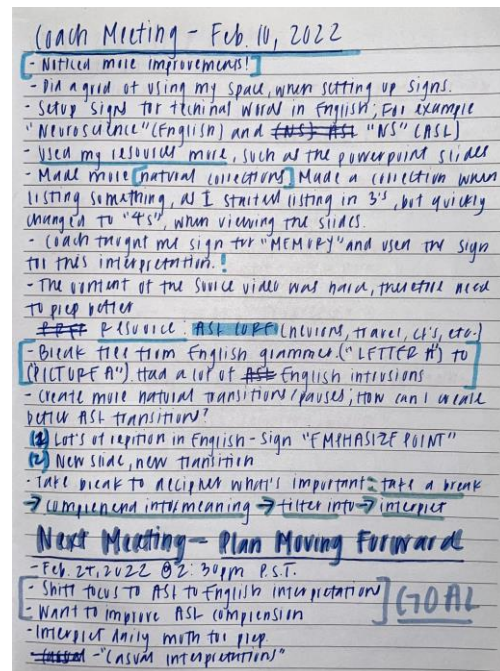 Coach Meeting - Feb. 10, 2022
[- Noticed more improvements!]
- Did a good of using my space, when setting up signs.
- Setup signs for techinal word in English; For example
"Neuroscience" (English) and (NS) ASL "NS" (ASL)
- Used my resources more, such as the powerpoint slides
- Made more [natural corrections] Made a correction when
listing something, as I started listing in 3's, but quickly
changed to "4's", when viewing the slides.
- Coach taught me sign for "MEMORY" and used the sign
for this interpretation.!
- The content of the source video was hard, therefore need
to prep better
Resource: ASL CORE (neurons, travel, cl's, etc.)
[- Break free from English grammer. ("LETTER A") to
("PICTURE A"). Had a lot of ASL English intrusions]
- Create more natural transitions/pauses; How can I create
better ASL transition?
(1) Lot's of repition in English - Sign "EMPHASIZE POINT"
(2) New slide, new transition
- Take break to decipher what's important: take a break
→ comprehend into meaning → filter info → interpret
Next Meeting - Plan Moving Forward
- Feb. 27, 2022 @ 2:30pm P.S.T.
[- Shift focus to ASL to English interpretation
- Want to improve ASL comprension] GOAL
- Interpret daily moth for prep.
- Casual - "Casual interpretations"